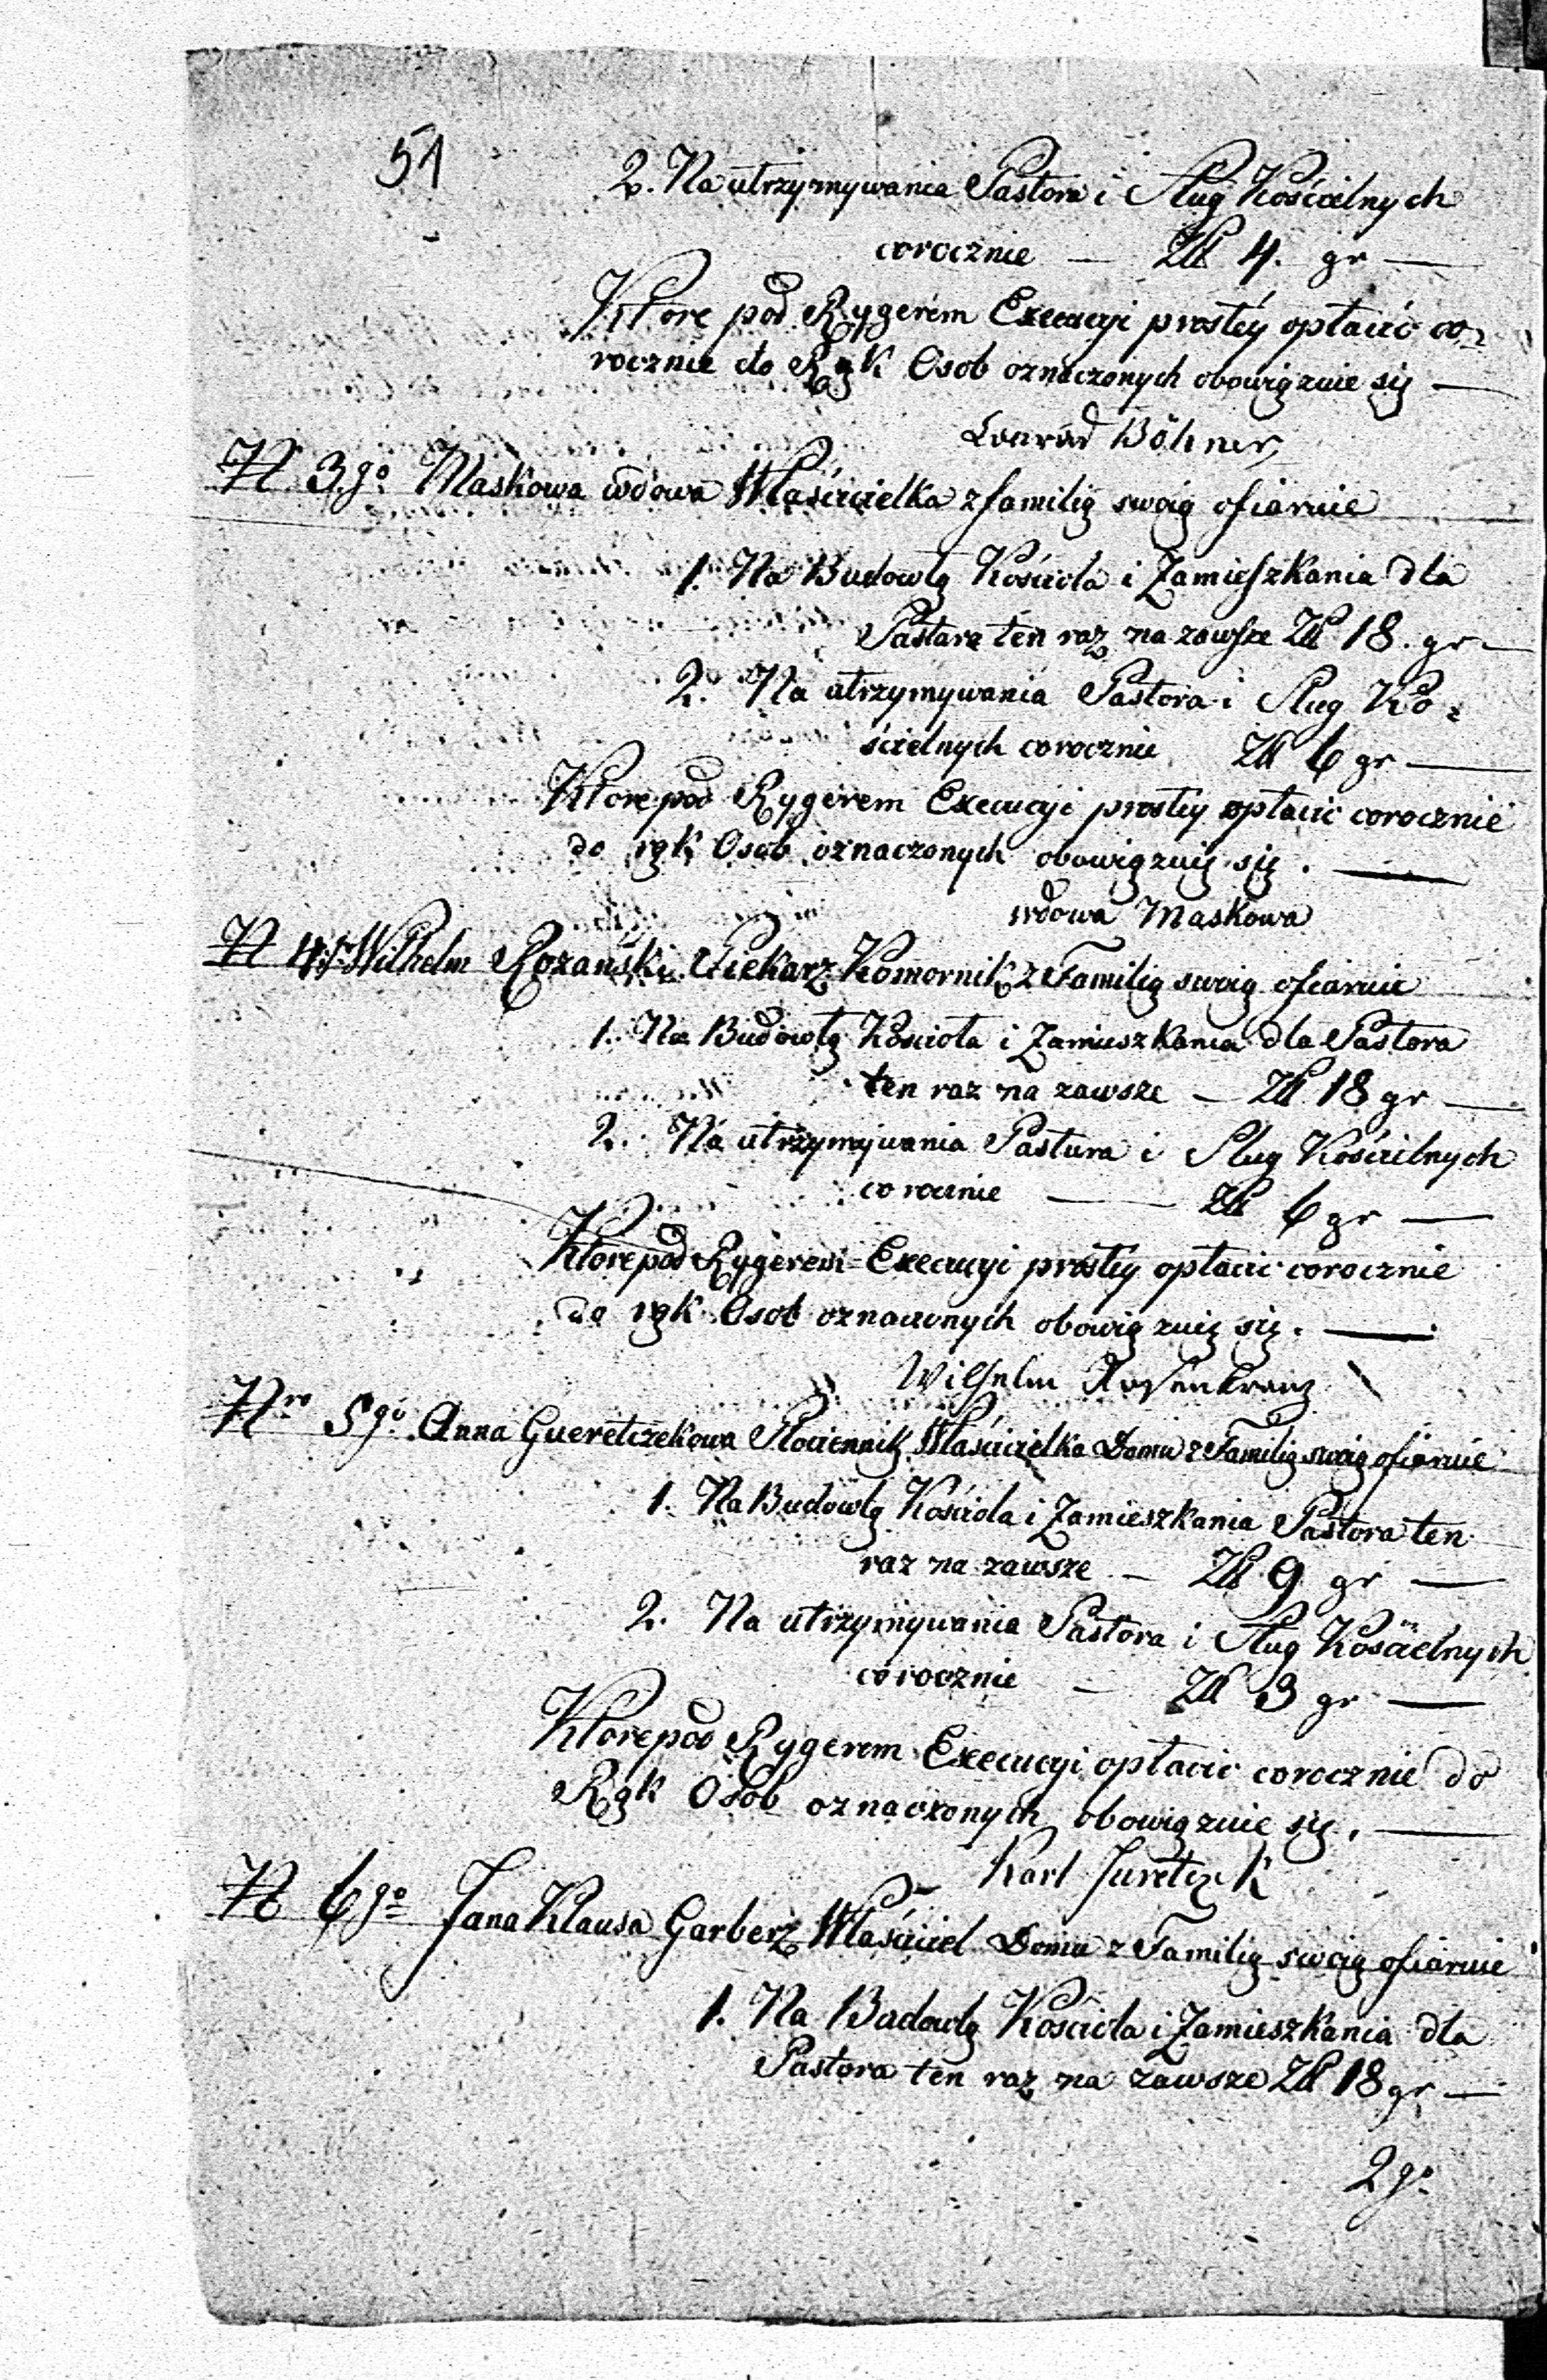 51
2. Na utrzymywania Pastora i Sług Kościelnych
corocznie — Zł 4. gr —
Które pod Rygerem Execucyi prostey opłacić co-
rocznie do Rąk Osob oznaczonych obowiązuie się —
Conrad Böhner
N. 3go. Maskowa wdowa Właścicielka z familią swoią ofiaruie
1. Na Budowlą Kościoła i Zamieszkania dla
Pastora ten raz na zawsze Zł 18. gr —
2. Na utrzymywania Pastora i Sług Ko-
ścielnych corocznie Zł 6 gr —
Które pod Rygerem Execucyi prostey opłacić corocznie
do rąk Osob oznaczonych obowiązuię się. —
wdowa Maskowa
N 4to Wilhelm Rozański Piekarz Komornik z Familią swoią ofiaruie
1. Na Budowlą Kościoła i Zamieszkania dla Pastora
ten raz na zawsze — Zł 18 gr —
2. Na utrzymywania Pastura i Sług Kościelnych
corocznie — Zł 6 gr —
Które pod Rygerem Execucyi prostey opłacić corocznie
do rąk Osob oznaczonych obowiązuię się. —
Wilhelm Rosenkranz
Nro 5go. Anna Gueretczekowa Płociennik Właścicielka Domu z Familią swoią ofiaruie
1. Na Budowlą Kościoła i Zamieszkania Pastora ten
raz na zawsze — Zł 9 gr —
2. Na utrzymywania Pastora i Sług Kościelnych
corocznie — Zł 3 gr —
Które pod Rygerem Execucyi opłacić corocznie do
Rąk Osob oznaczonych obowiązuie się. —
Karl Juretzek
N 6go Jana Klausa Garberz Właściciel Domu z Familią swoią ofiaruie
1. Na Budowlą Kościoła i Zamieszkania dla
Pastora ten raz na zawsze Zł 18 gr —
2go.